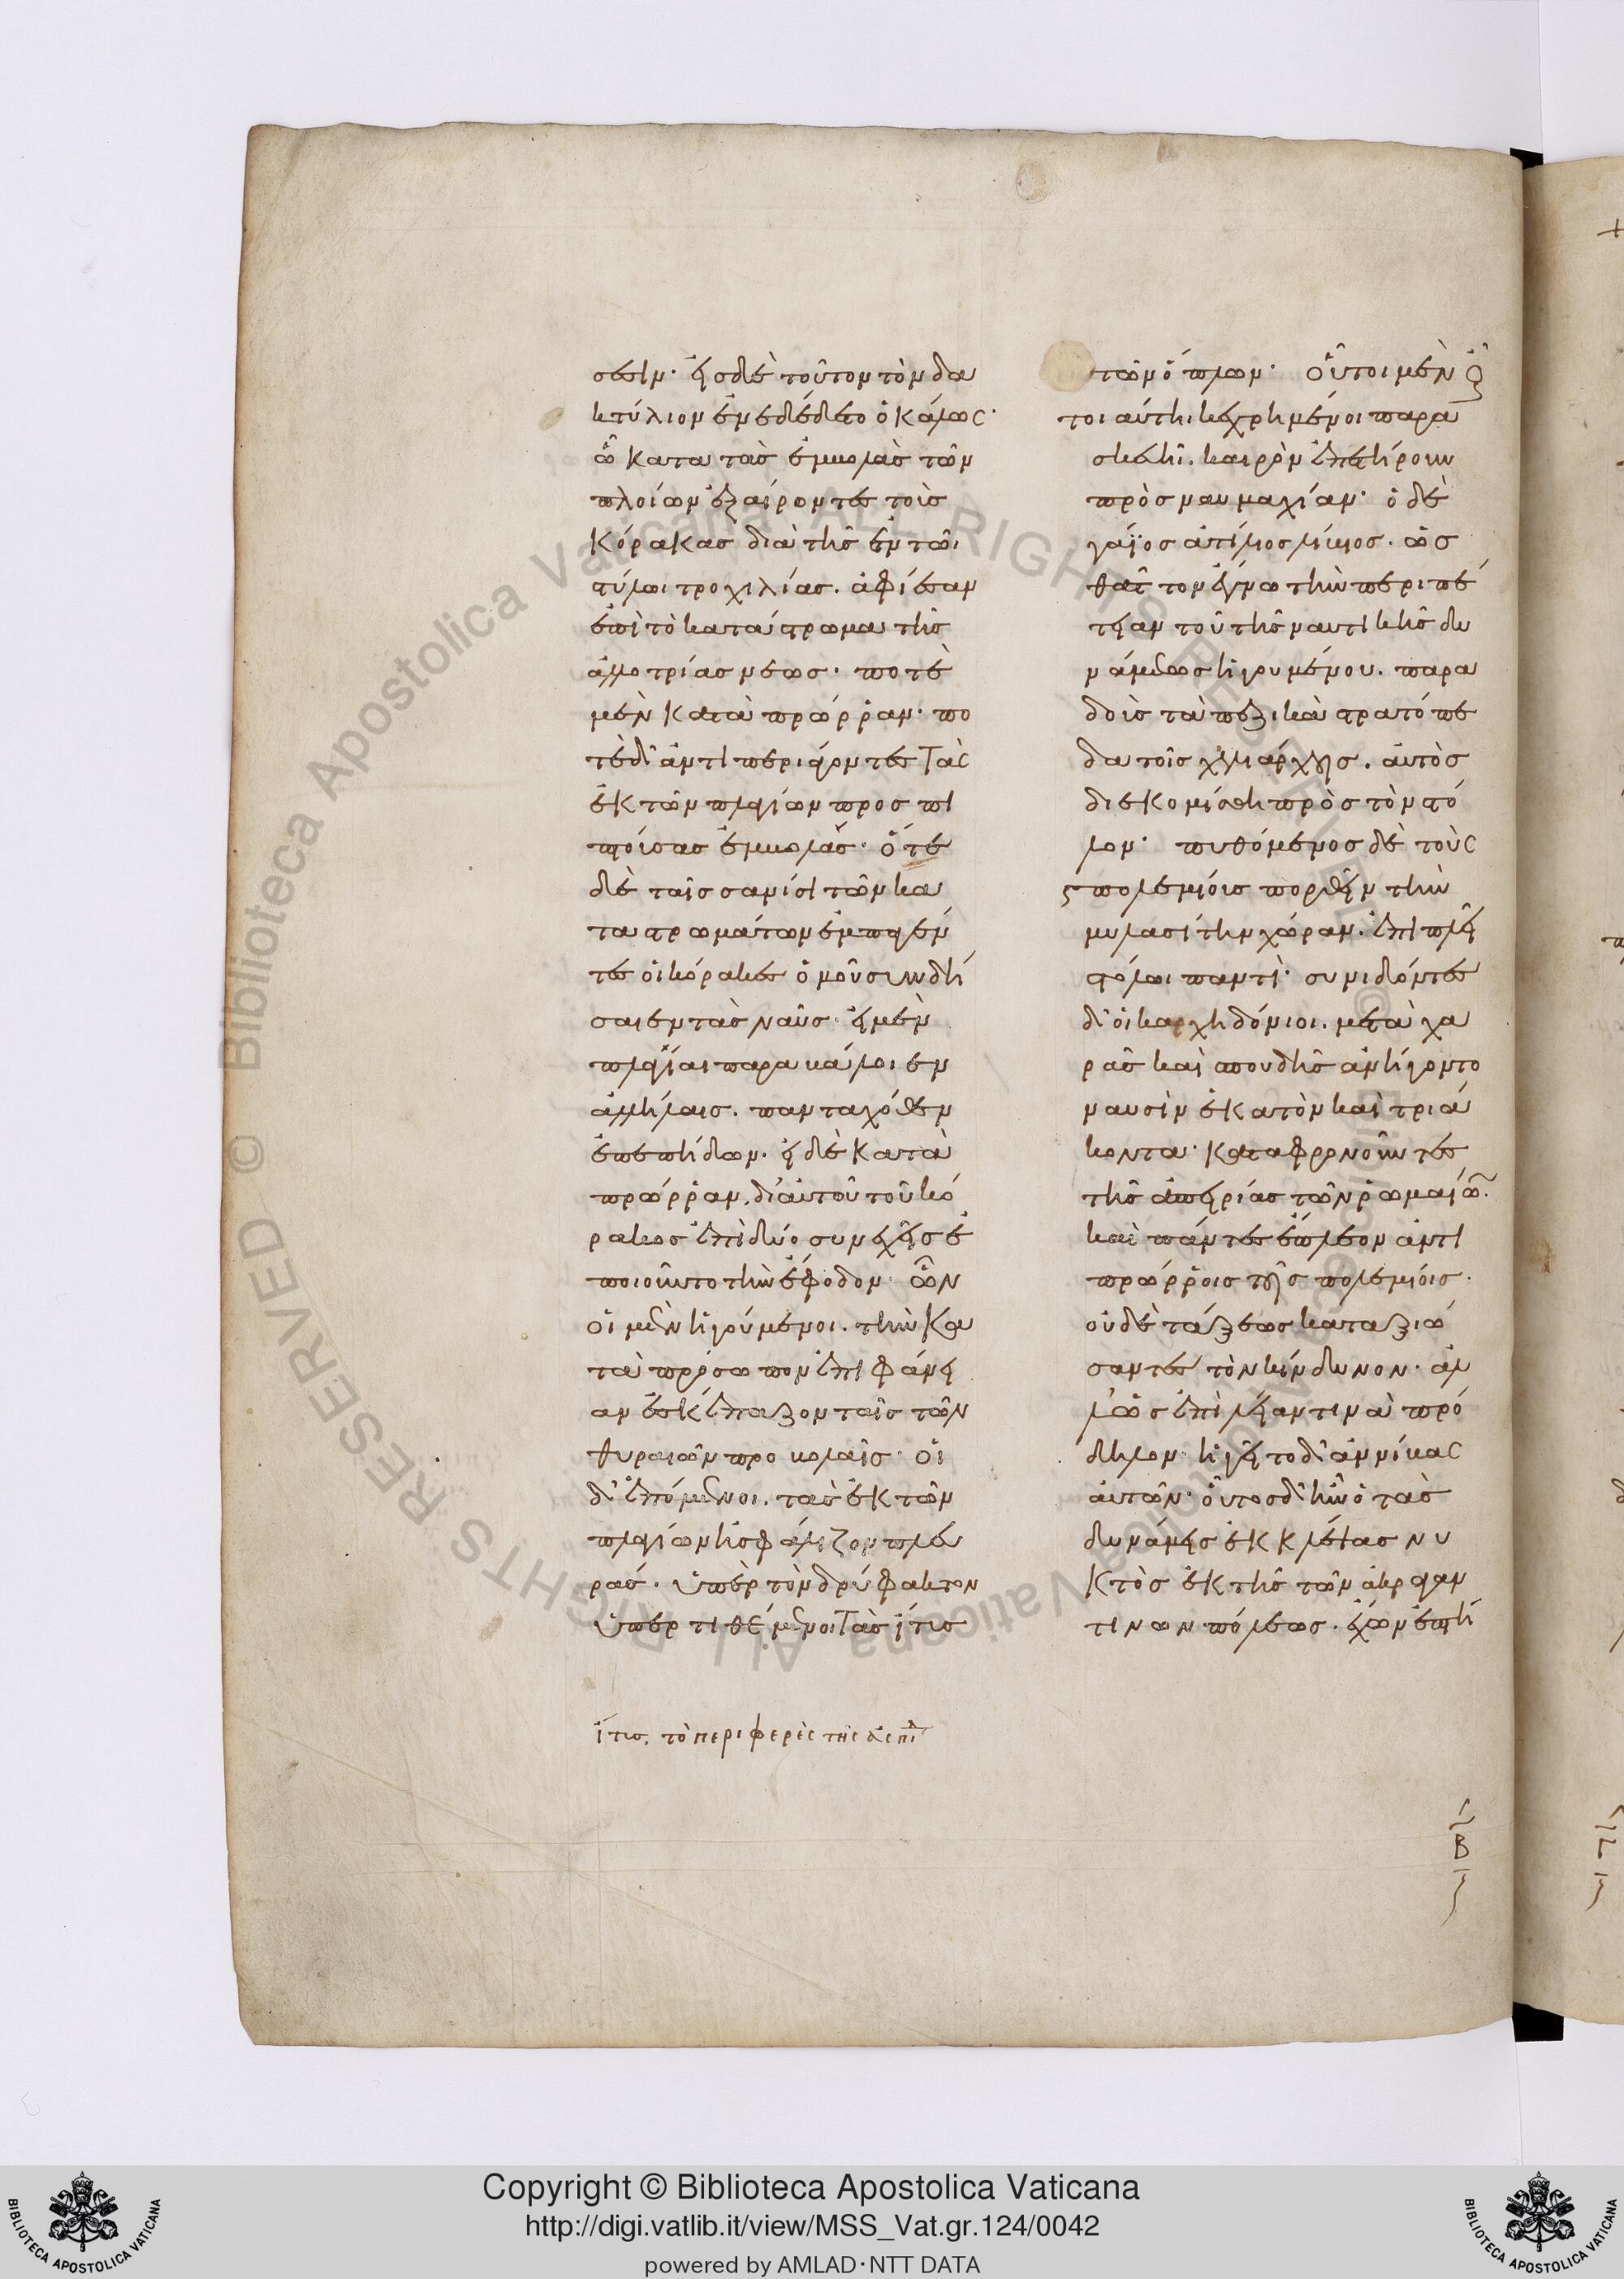 σεσιν· εἰς δὲ τοῦτον τὸν δα
κτύλιον ἐνεδέδετο ὁ κάλως·
ὧ κατα τὰς ἐμβολὰς τῶν
πλοίων ἐξαίροντες τοὺς
κόρακας διὰ τῆς ἐν τῶι
στύλωι τροχιλίας. ἀφίεσαν
ἐπὶ τὸ κατάστρωμα τῆς
ἀλλοτρίας νεως· ποτὲ
μὲν κατὰ πρώρραν· πο
τὲ δ' ἀντιπεριάγοντες τὰς
ἐκ τῶν πλαγίων προσπι
πτούσας ἐμβολάς· ὅτε
δὲ ταῖς σανίσι τῶν κα
ταστρωμάτων ἐμπαγέν
τες οἱ κόρακες ὁμοῦ συνδή
σαιεν τὰς ναῦς· εἰ μὲν
πλαγίαι παραβάλοιεν
ἀλλήλαις. πανταχόθεν
ἐπεπήδων. εἰ δὲ κατὰ
πρώρραν. δι' αὐτοῦ τοῦ κό
ρακος ἐπὶ δύο συνεχεῖς ἐ
ποιοῦντο τὴν ἔφοδον· ὧν
οἱ μὲν ἡγούμενοι. τὴν κα
τὰ πρόσωπον ἐπιφάνει
αν ἐσκέπαζον ταῖς τῶν
θυραιῶν προβολαῖς· οἱ
δ' ἑπόμενοι. τὰς ἐκ τῶν
πλαγίων ἠσφάλιζον πλευ
ράς. ὑπὲρ τὸν δρύφακτον
ὑπερτιθέμενοι τὰς ἴτυς
ἴτυς. τὸ περιφερὲς τῆς ἀσπιδ
τῶν ὅπλων· οὗτοι μὲν οὖν
τοιαύτηι κεχρημένοι παρα
σκευῆι. καιρὸν ἐπετήρουν
πρὸς ναυμαχίαν· ὁ δὲ
γάϊος ἀτίλιος λίβιος. ὡς
θᾶττον ἔγνω τὴν περιπέ
τειαν τοῦ τῆς ναυτικῆς δυ
νάμεως ἡγουμένου. παρα
δοὺς τὰ πεζικὰ στρατόπε
δα τοῖς χιλιάρχοις. αὐτὸς
διεκομίσθη πρὸς τὸν στό
λον· πυθόμενος δὲ τοὺς
πολεμίους πορθεῖν τὴν
μυλασίτην χώραν. ἐπιπλεῖ
στόλωι παντί· συνιδόντες
δ' οἱ καρχηδόνιοι. μετὰ χα
ρᾶς καὶ σπουδῆς ἀνήγοντο
ναυσὶν ἑκατὸν καὶ τριά
κοντα· καταφρονοῦντες
τῆς ἀπειρίας τῶν ῥωμαίων.
καὶ πάντες ἔπλεον ἀντι
πρώρροις τοῖς πολεμίοις·
οὐδὲ τάξεως καταξιώ
σαντες τὸν κίνδυνον· ἀλ
λ' ὡς ἐπὶ λείαν τινὰ πρό
δηλον· ἡγεῖτο δ' ἀννίβας
αὐτῶν· οὗτος δ' ἦν ὁ τὰς
δυνάμεις ἐκκλέψας νυ
κτὸς ἐκ τῆς τῶν ἀκραγαν
τινων πόλεως. ἔχων ἑπτή
Β